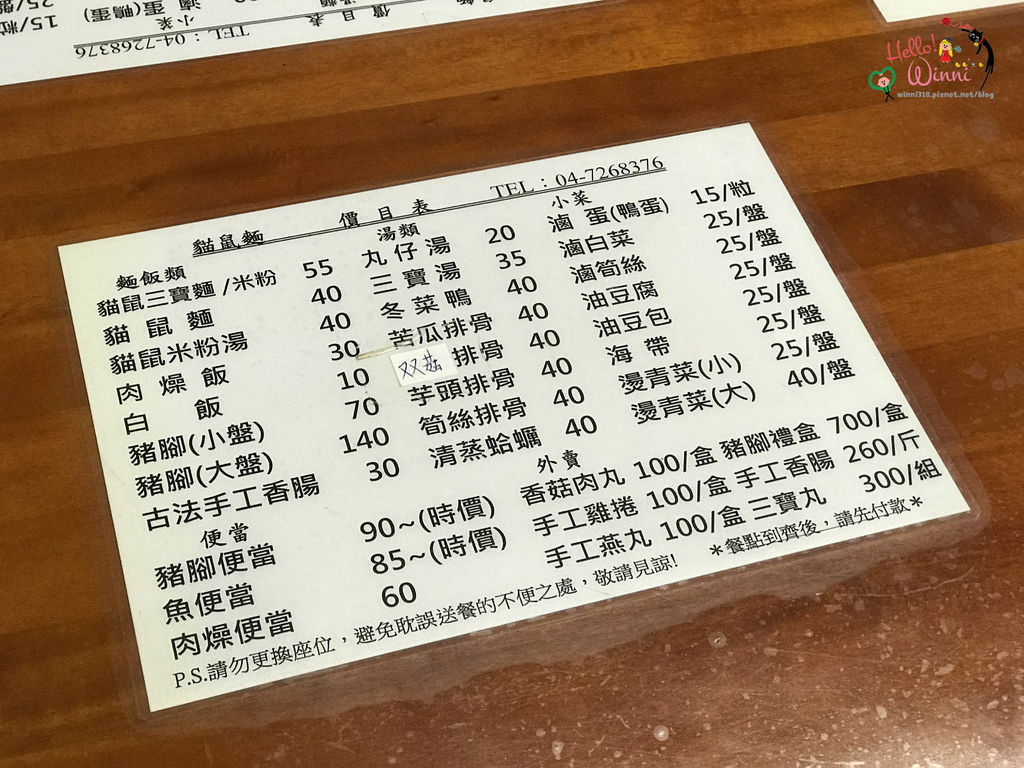 TEL：04-7268376
價 目 表
小菜
滷 蛋(鴨蛋) 15/粒
25/盤
Hello!
Winni
winni318.pixnet.net/blog
貓鼠麵 價 目 表 TEL：04-7268376
麵飯類 湯類 小菜
貓鼠三寶麵/米粉 55 丸仔湯 20 滷 蛋(鴨蛋) 15/粒
貓 鼠 麵 40 三 寶 湯 35 滷白菜 25/盤
貓鼠米粉湯 40 冬 菜 鴨 40 滷筍絲 25/盤
肉 燥 飯 30 苦瓜排骨 40 油豆腐 25/盤
白 飯 10 双菇排骨 40 油豆包 25/盤
豬腳(小盤) 70 芋頭排骨 40 海 帶 25/盤
豬腳(大盤) 140 筍絲排骨 40 燙青菜(小) 25/盤
古法手工香腸 30 清蒸蛤蠣 40 燙青菜(大) 40/盤
便當 外賣
豬腳便當 90~(時價) 香菇肉丸 100/盒 豬腳禮盒 700/盒
魚便當 85~(時價) 手工雞捲 100/盒 手工香腸 260/斤
肉燥便當 60 手工燕丸 100/盒 三寶丸 300/組
P.S.請勿更換座位，避免耽誤送餐的不便之處，敬請見諒! ＊餐點到齊後，請先付款＊